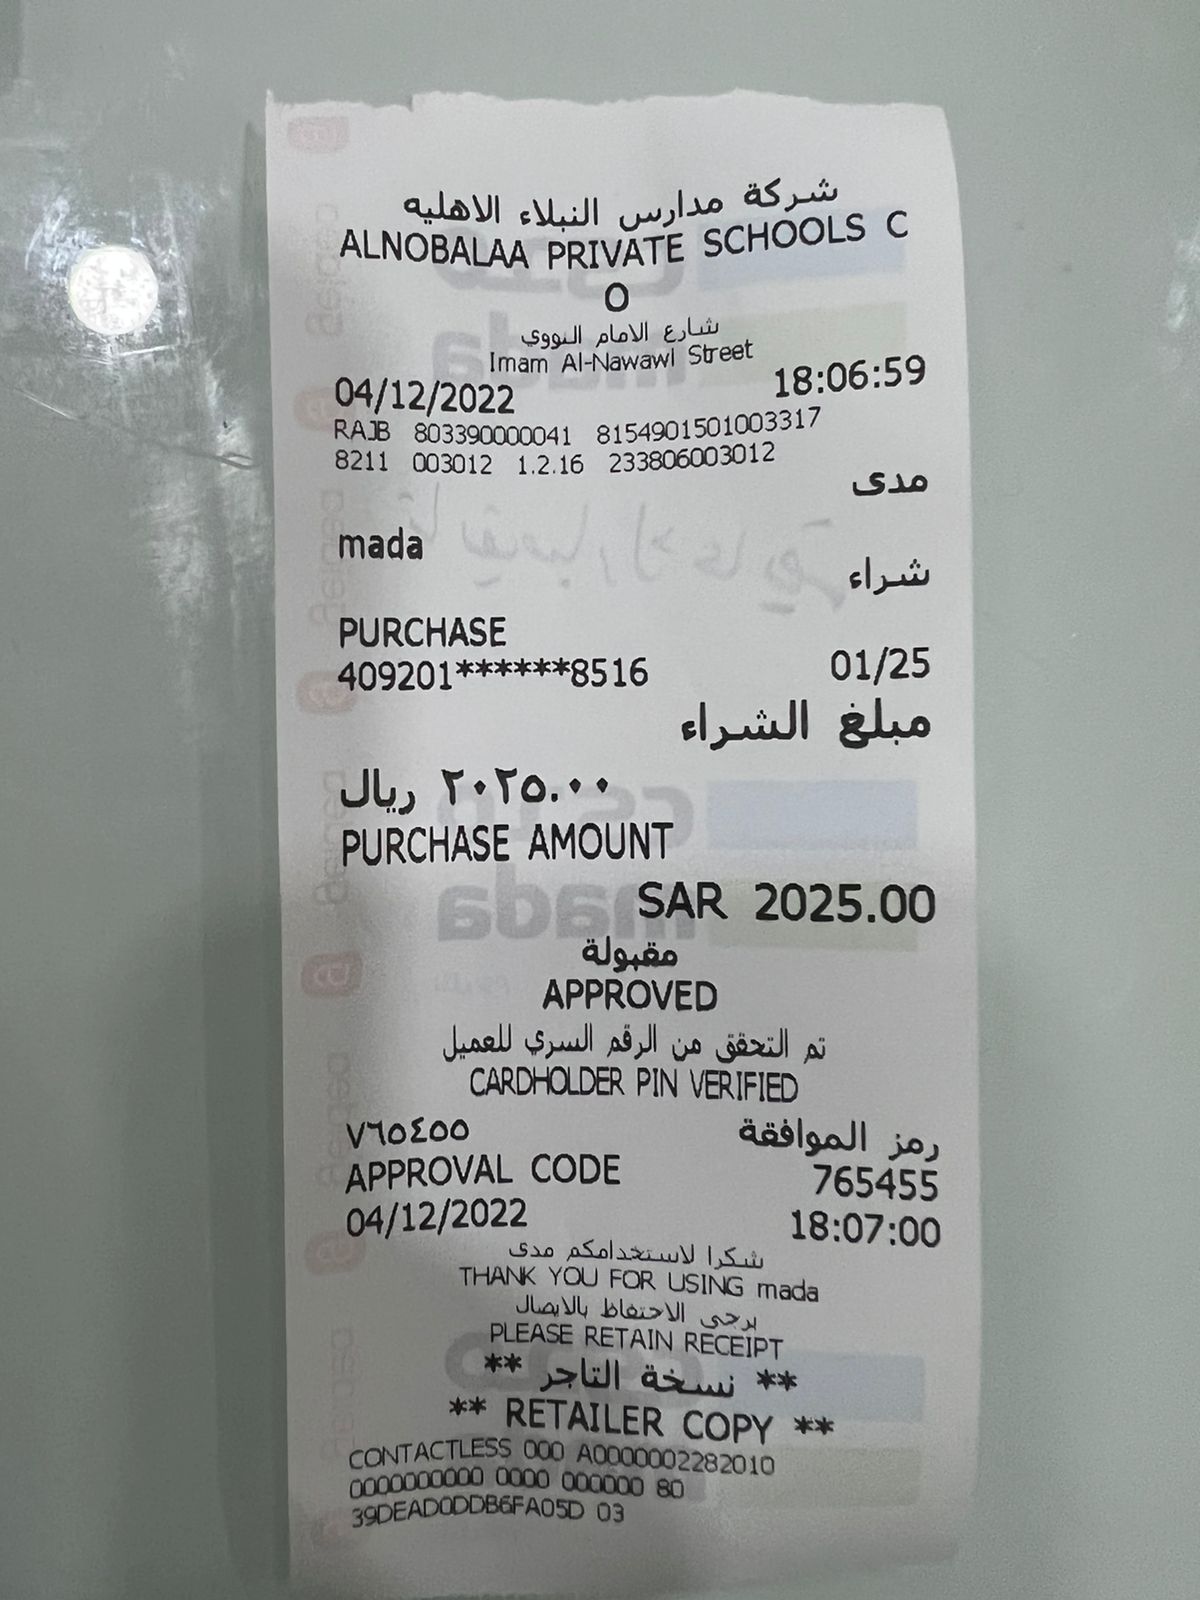 شركة مدارس النبلاء الاهليه
ALNOBALAA PRIVATE SCHOOLS C
O
شارع الامام النووي
Imam Al-Nawawl Street
04/12/2022 18:06:59
RAJB 803390000041 8154901501003317
8211 003012 1.2.16 233806003012
مدى
mada
شراء
PURCHASE
409201******8516 01/25
مبلغ الشراء
٢٠٢٥.٠٠ ريال
PURCHASE AMOUNT
SAR 2025.00
مقبولة
APPROVED
تم التحقق من الرقم السري للعميل
CARDHOLDER PIN VERIFIED
رمز الموافقة ٧٦٥٤٥٥
APPROVAL CODE 765455
04/12/2022 18:07:00
شكرا لاستخدامكم مدى
THANK YOU FOR USING mada
يرجى الاحتفاظ بالايصال
PLEASE RETAIN RECEIPT
** نسخة التاجر **
** RETAILER COPY **
CONTACTLESS 000 A0000002282010
0000000000 0000 000000 80
39DEAD0DDB6FA05D 03